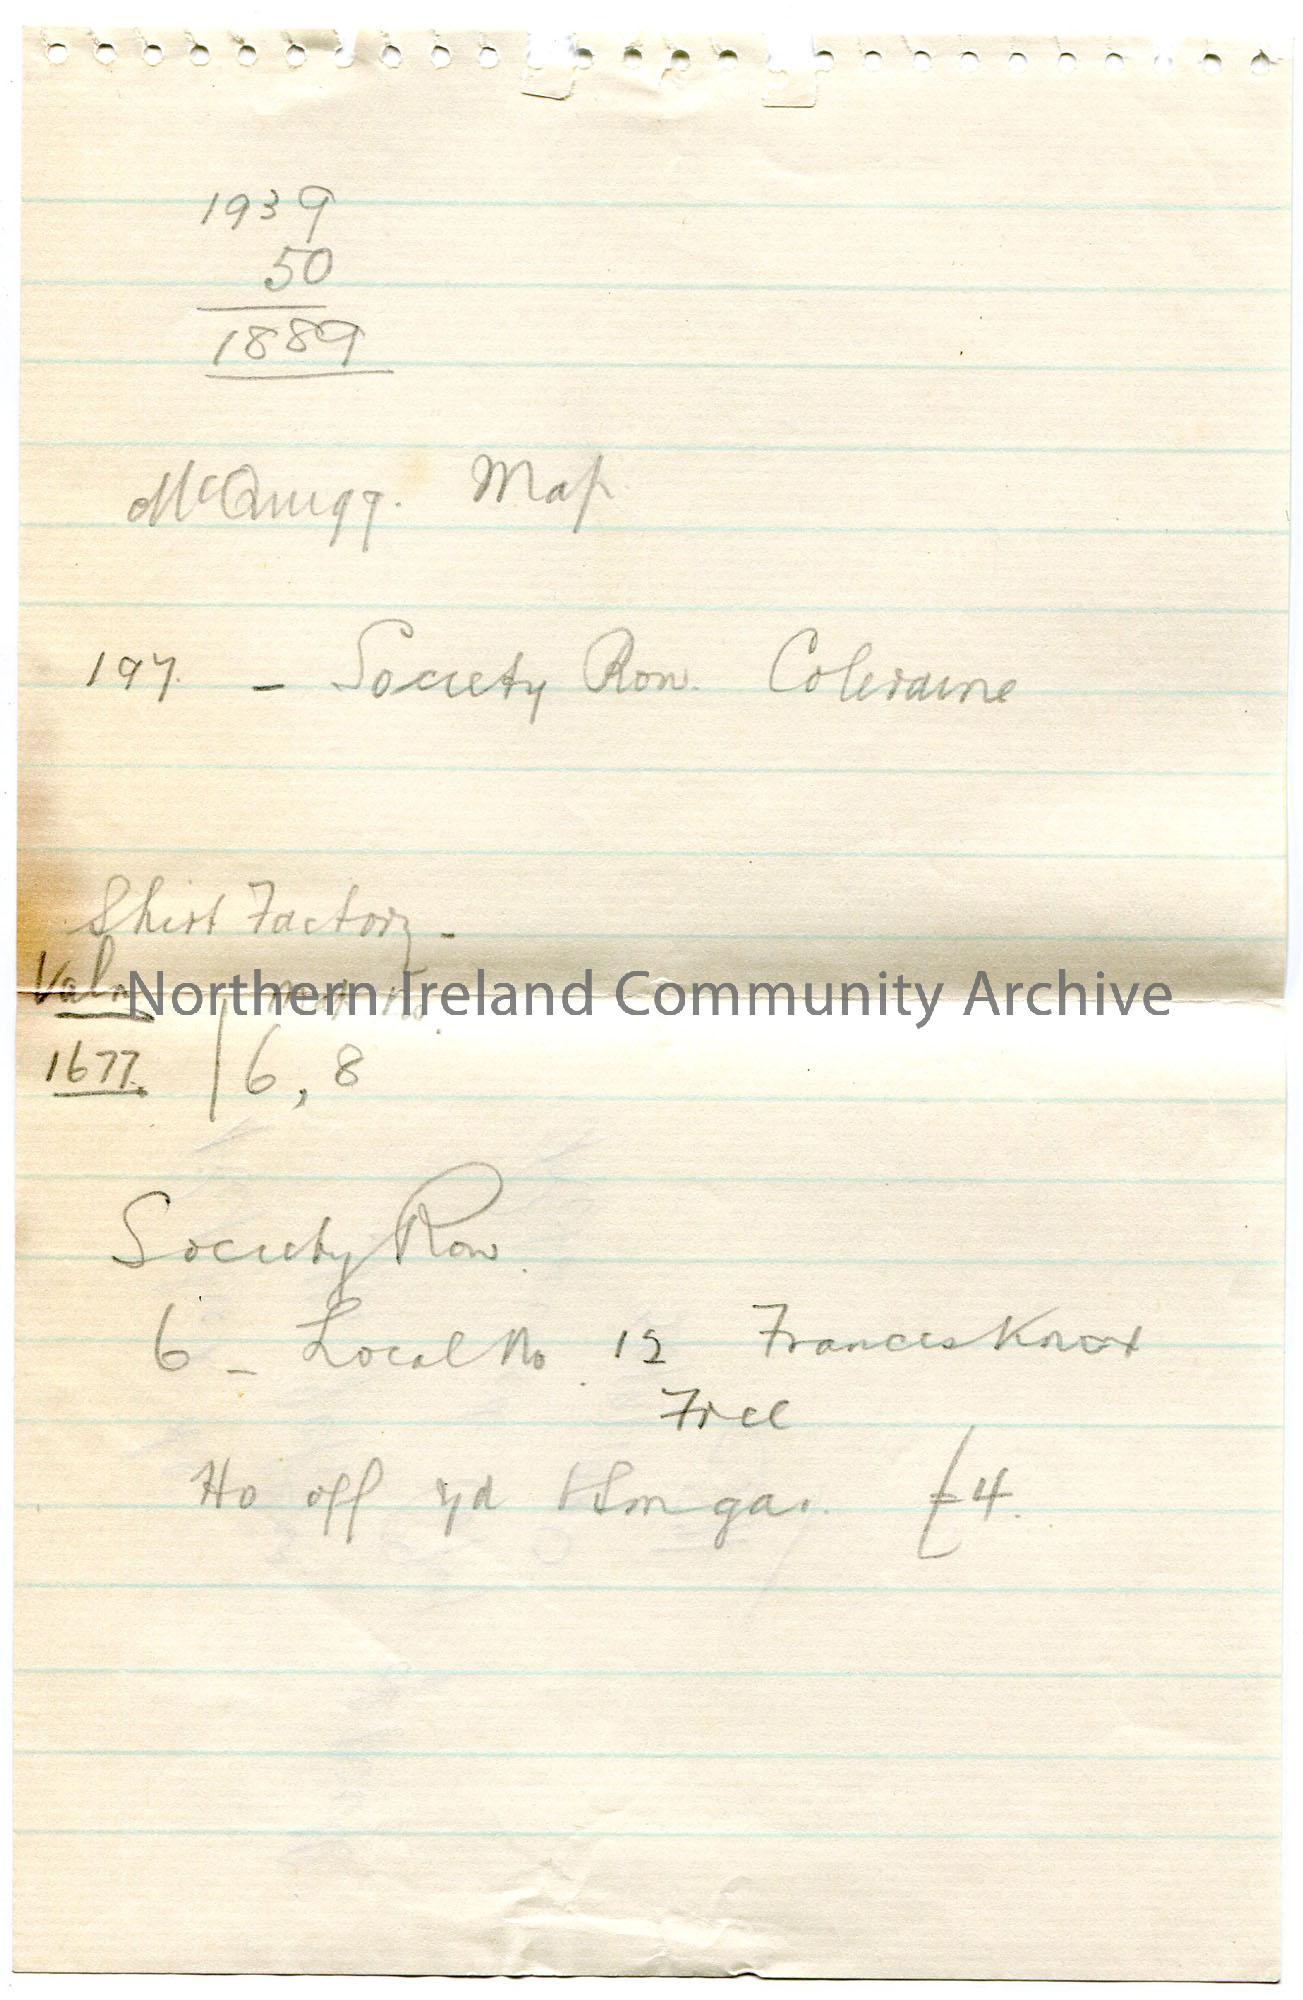 1939
50
1889
McQuigg. Map
197. - Society Row. Coleraine
Shirt Factory -
Valn Map No.
Northern Ireland Community Archive
1677. 6, 8
Society Row.
6 - Local No. 12 Frances Knox
Free
Ho off yd & Sm gar. £4.